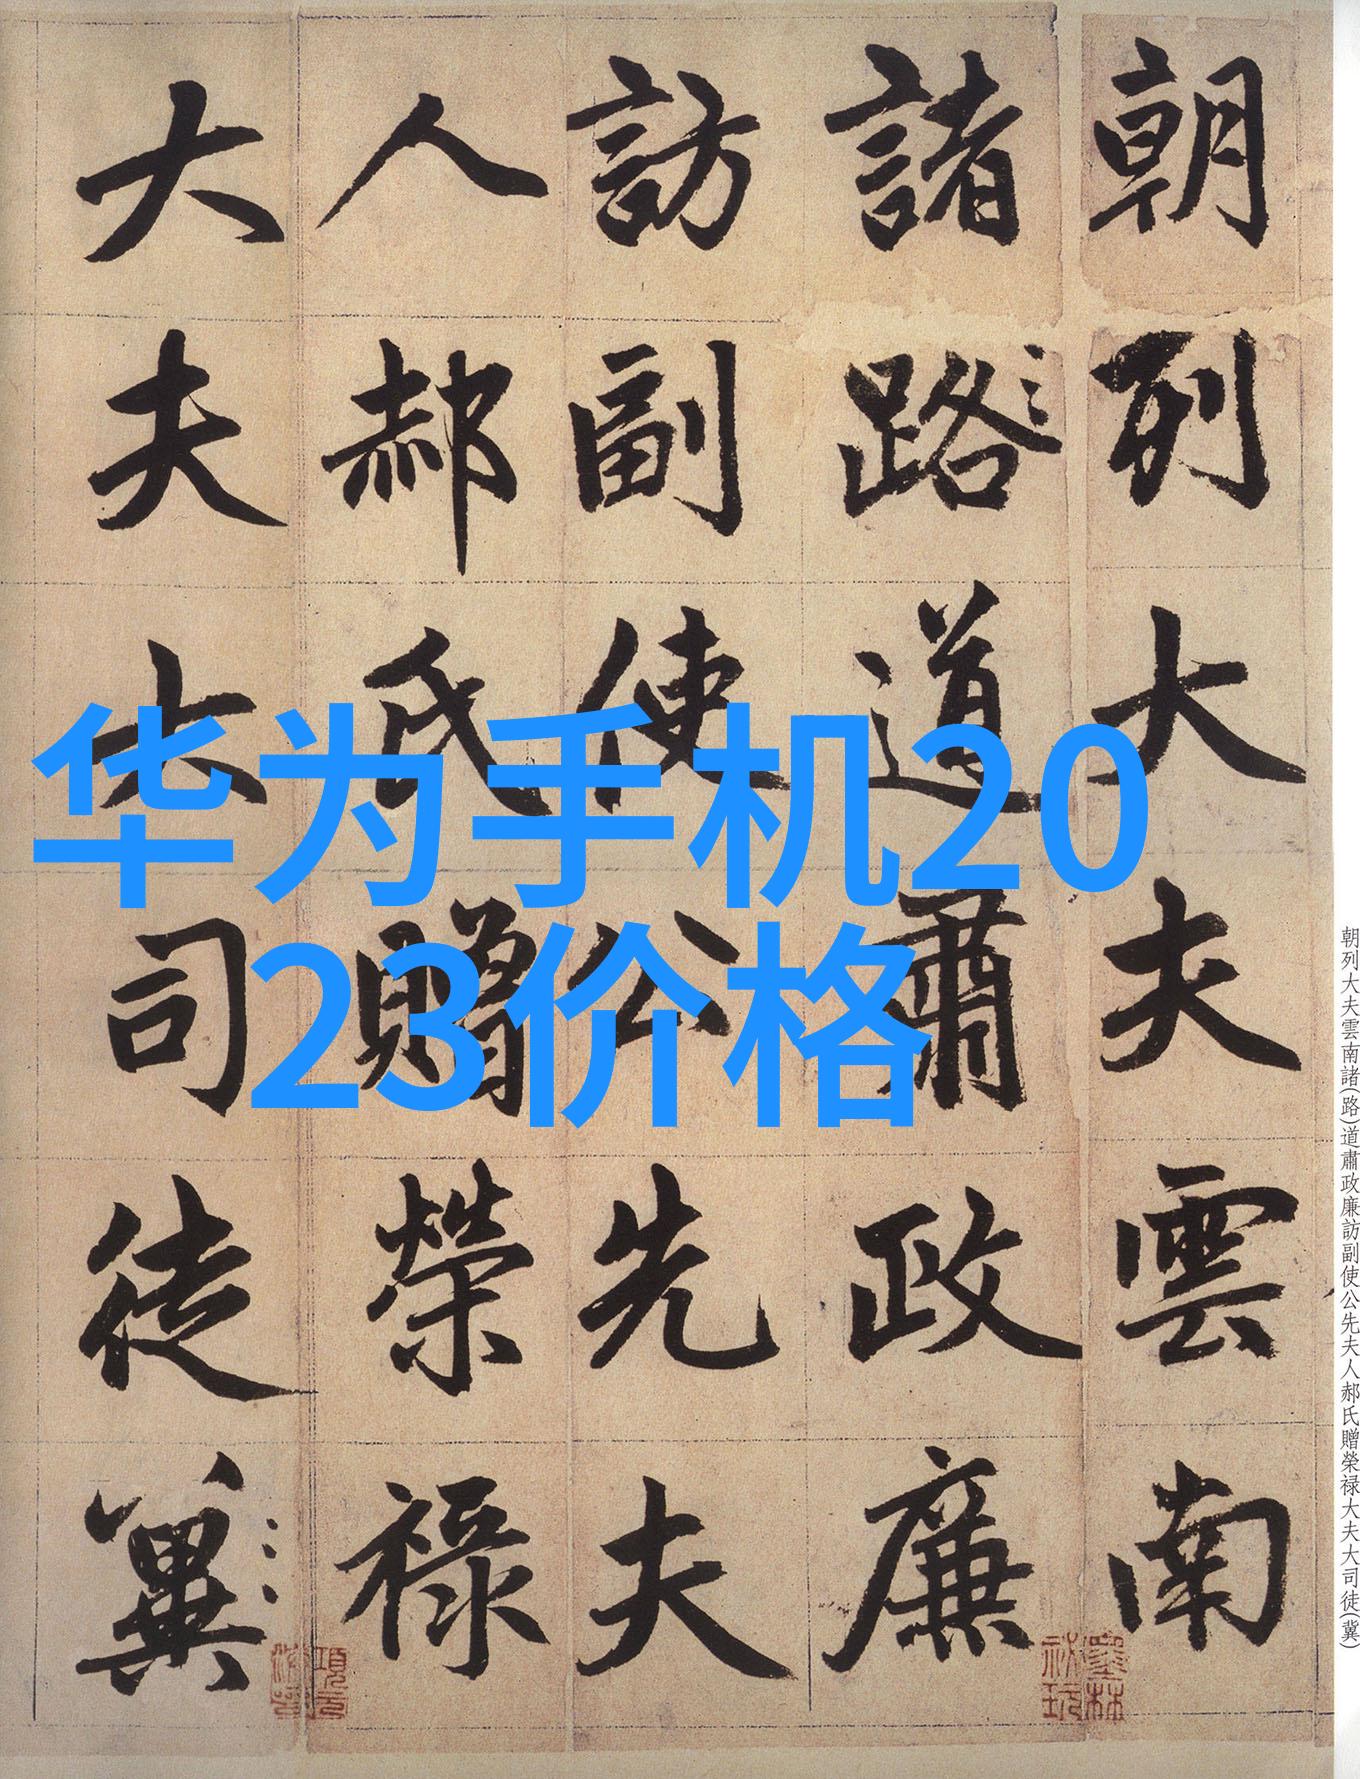 华为手机20
23价格
朝列大夫雲南
諸路道肅政廉
訪副使公先夫
人郝氏贈榮祿
大夫大司徒冀
朝列大夫雲南諸(路)道肅政廉訪副使公先夫人郝氏贈榮禄大夫大司徒(冀)